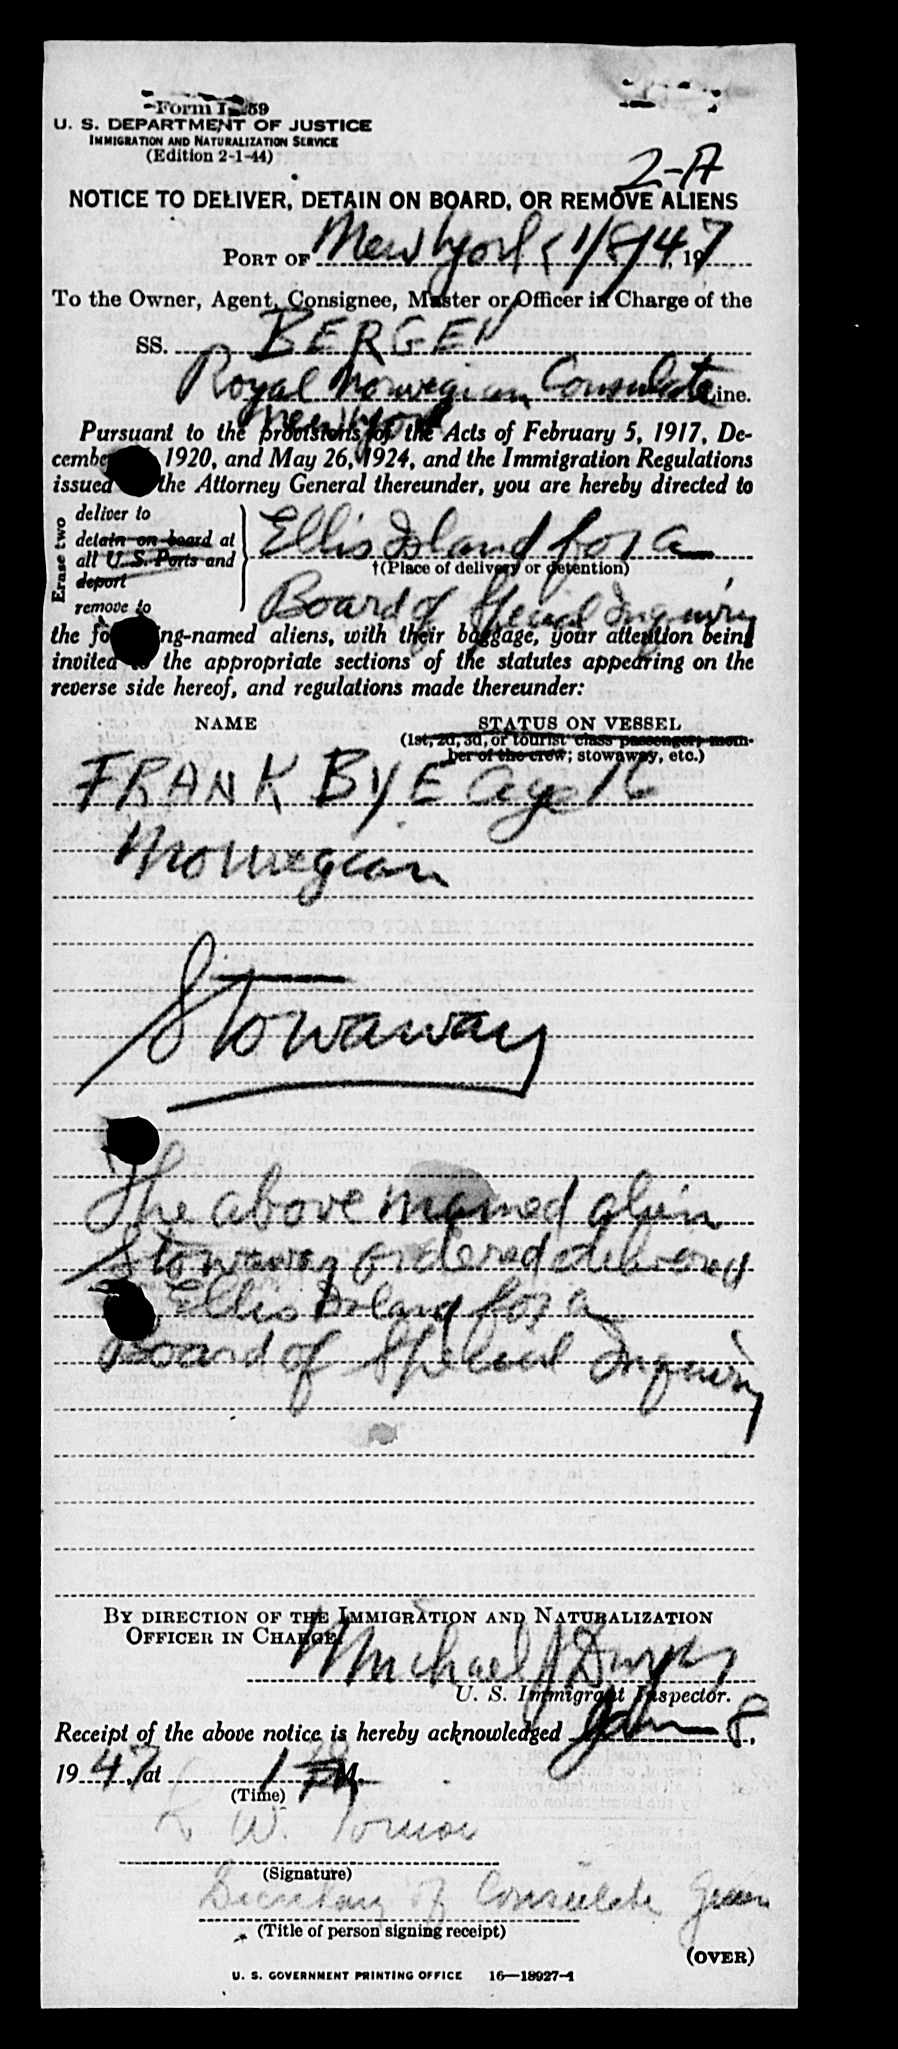 Form I-259
U. S. DEPARTMENT OF JUSTICE
IMMIGRATION AND NATURALIZATION SERVICE
(Edition 2-1-44)
2-A
NOTICE TO DELIVER, DETAIN ON BOARD, OR REMOVE ALIENS
PORT OF New York 1/8/47, 19
To the Owner, Agent, Consignee, Master or Officer in Charge of the
SS. BERGEN
Royal Norwegian Consulate Line.
New York
Pursuant to the provisions of the Acts of February 5, 1917, De-
cember 1920, and May 26, 1924, and the Immigration Regulations
issued the Attorney General thereunder, you are hereby directed to
Erase two
deliver to
detain on board at
all U.S. Ports and
deport
remove to
Ellis Island for a
†(Place of delivery or detention)
Board of Special Inquiry
the following-named aliens, with their baggage, your attention being
invited to the appropriate sections of the statutes appearing on the
reverse side hereof, and regulations made thereunder:
NAME STATUS ON VESSEL
(1st, 2d, 3d, or tourist class passenger, mem-
ber of the crew; stowaway, etc.)
FRANK BYE age 16
Norwegian
Stowaway
The above named alien
Stowaway ordered delivered
Ellis Island for a
Board of Special Inquiry
BY DIRECTION OF THE IMMIGRATION AND NATURALIZATION
OFFICER IN CHARGE.
Michael J
U. S. Immigrant Inspector.
Receipt of the above notice is hereby acknowledged Jan 8,
1947, at 1 M.
(Time)
W.
(Signature)
Secretary of Consulate Gen
(Title of person signing receipt)
(OVER)
U. S. GOVERNMENT PRINTING OFFICE 16—18927-1